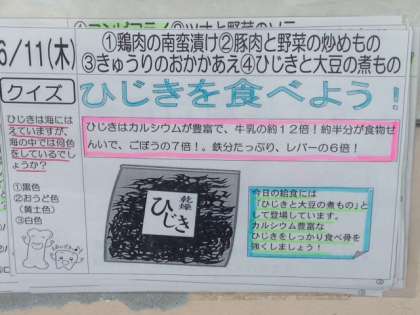 6/11(木)
①鶏肉の南蛮漬け②豚肉と野菜の炒めもの
③きゅうりのおかかあえ④ひじきと大豆の煮もの
クイズ
ひじきは海には
えていますが、
海の中では何色
をしているでし
ょうか?
①黒色
②おうど色
(黄土色)
③白色
ひじきを食べよう!
ひじきはカルシウムが豊富で、牛乳の約12倍!約半分が食物せ
んいで、ごぼうの7倍!。鉄分たっぷり、レバーの6倍!
乾燥
ひじき
今日の給食には
「ひじきと大豆の煮もの」と
して登場しています。
カルシウム豊富な
ひじきをしっかり食べ骨を
強くしましょう!